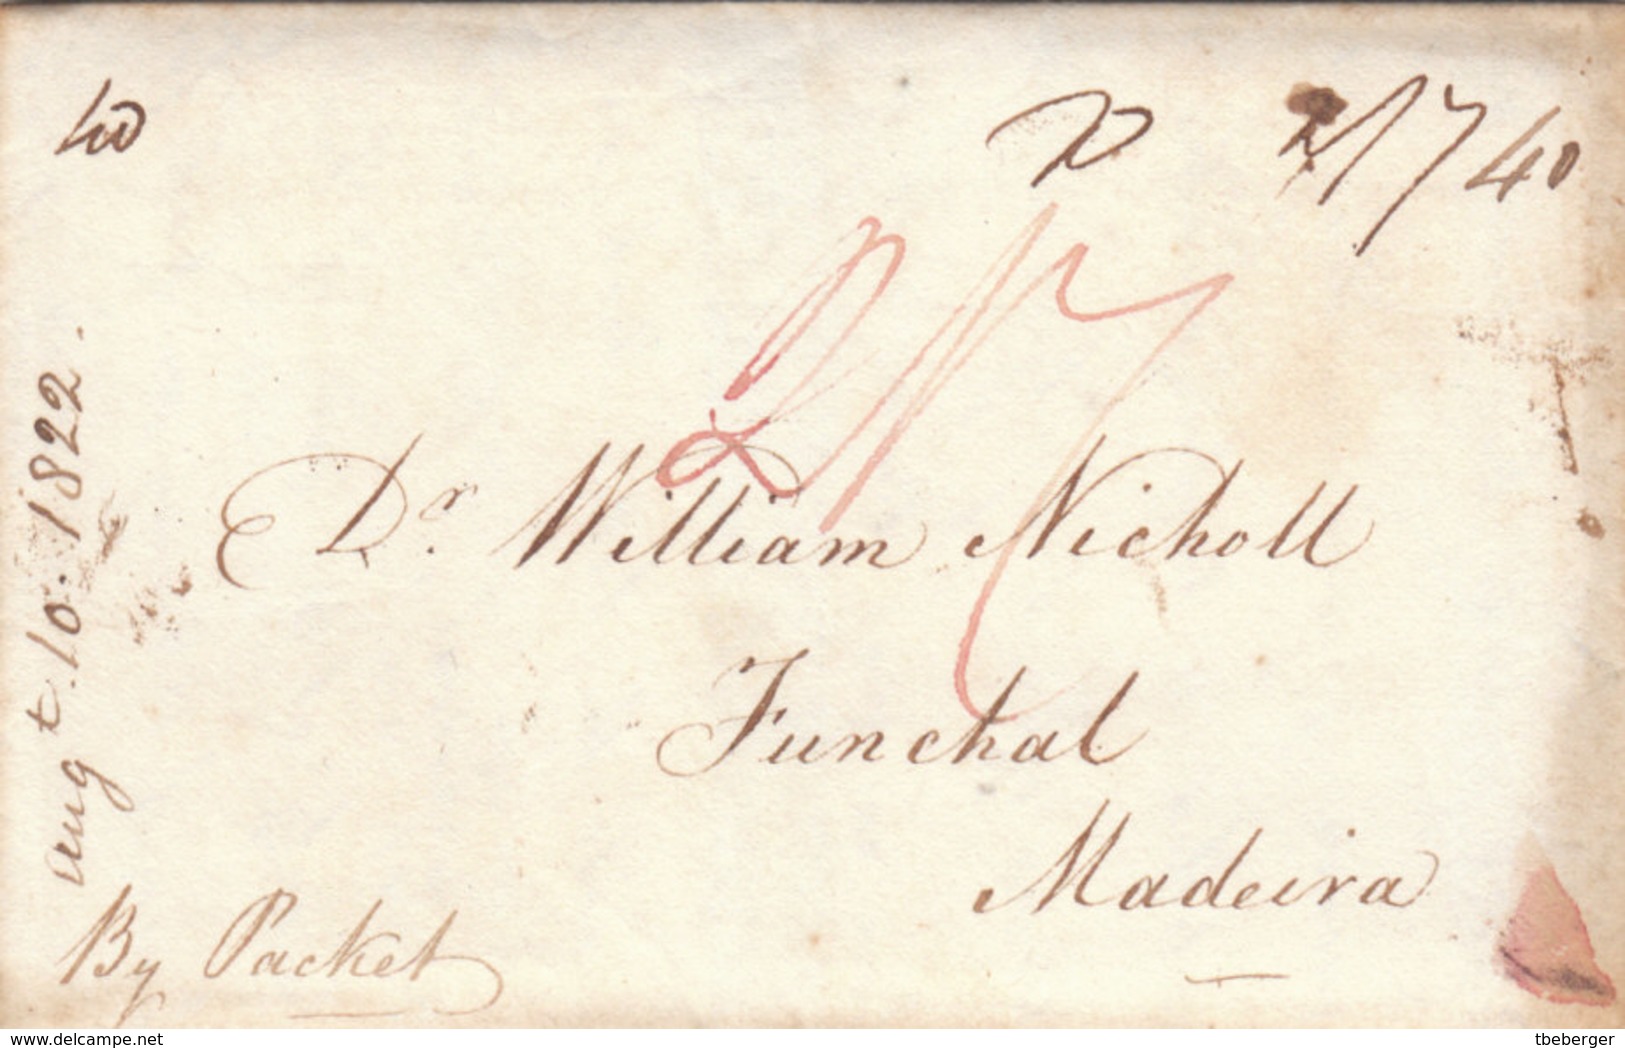 40
2/7 40
2/7
Dr. William Nicholl
Funchal
Madeira
By Packet
augt. 10. 1822.
www.delcampe.net
tbeberger